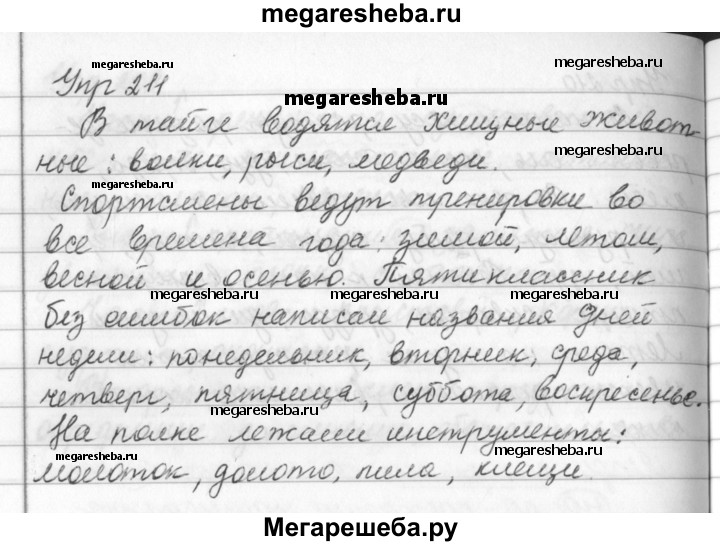 megaresheba.ru
megaresheba.ru
megaresheba.ru
Упр 211
megaresheba.ru
В тайге водятся хищные живот-
megaresheba.ru
ные: волки, рыси, медведи.
megaresheba.ru
Спортсмены ведут тренировки во
все времена года: зимой, летом,
весной и осенью. Пятиклассник
megaresheba.ru
megaresheba.ru
без ошибок написал названия дней
недели: понедельник, вторник, среда,
четверг, пятница, суббота, воскресенье.
megaresheba.ru
На полке лежали инструменты:
megaresheba.ru
megaresheba.ru
молоток, долото, пила, клещи.
Мегарешеба.ру